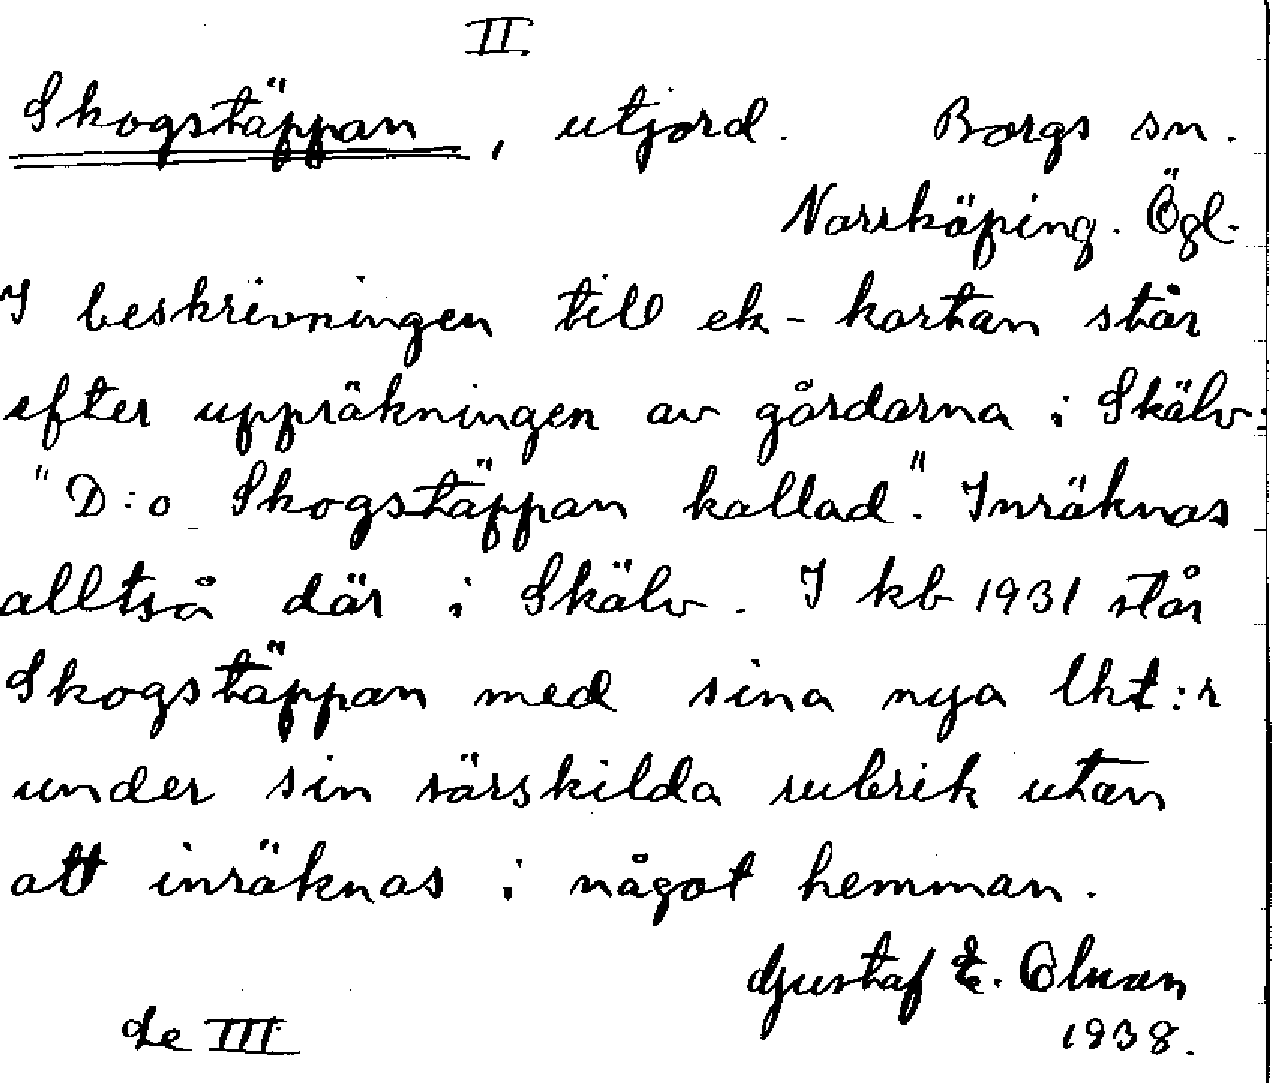 II.
Skogstäppan, utjord. Borgs sn.
Norrköping. Ögl.
I beskrivningen till ek-kartan står
efter uppräkningen av gårdarna i Skälv:
"D:o Skogstäppan kallad". Inräknas
alltså där i Skälv. I kb 1931 står
Skogstäppan med sina nya lht:r
under sin särskilda rubrik utan
att inräknas i något hemman.
Gustaf E. Olson
Se III 1938.